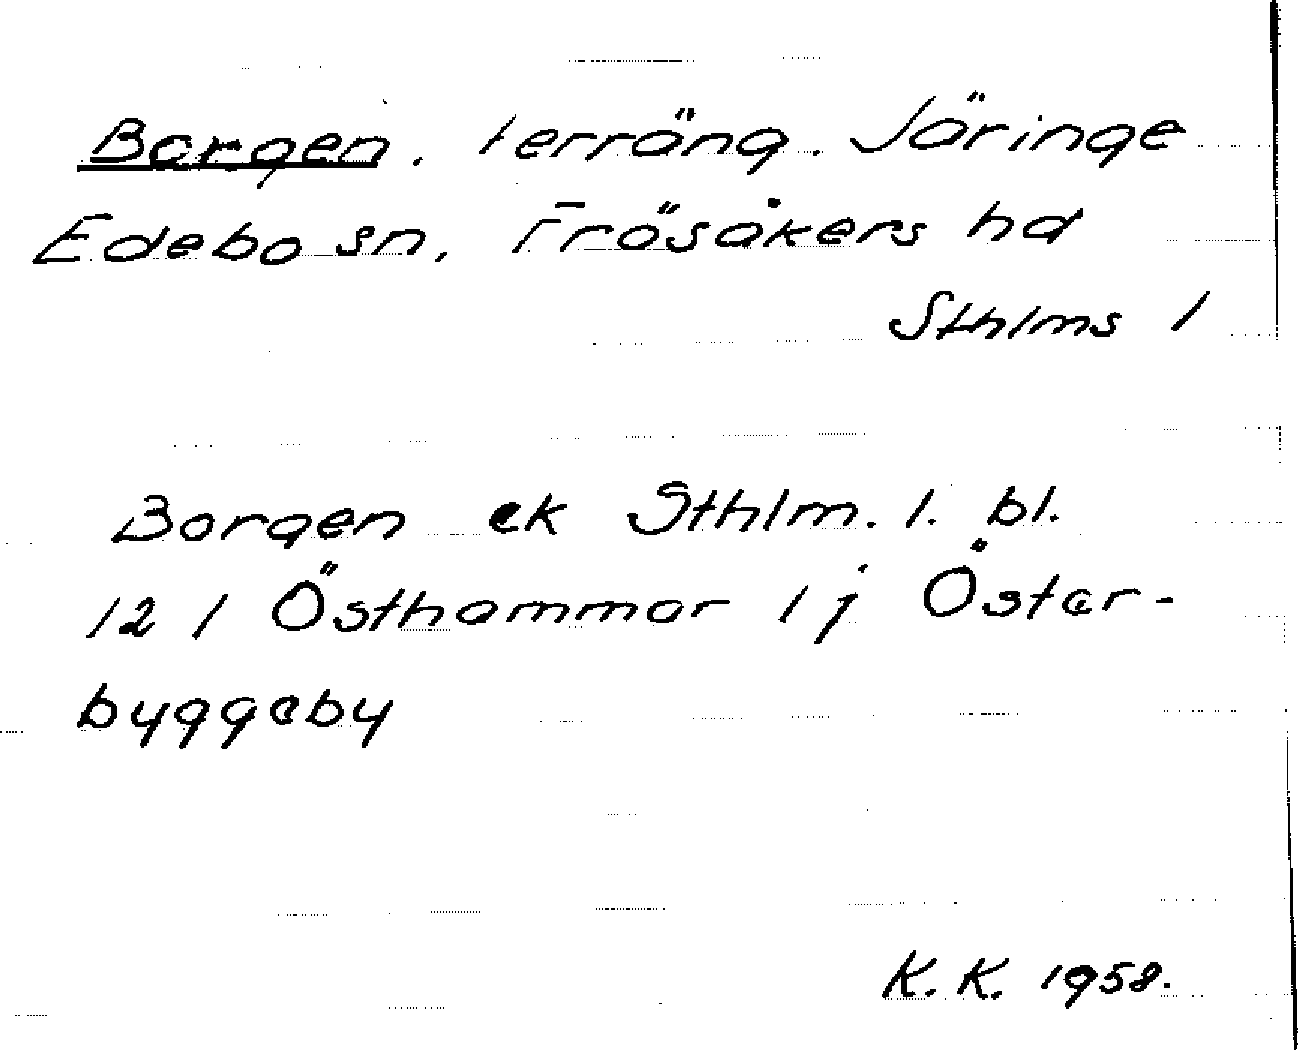 Borgen. Terräng. Järinge
Edebo sn, Frösåkers hd
Sthlms l
Borgen ek Sthlm. l. bl.
121 Östhammar 1 j Öster-
byggeby
K. K. 1958.